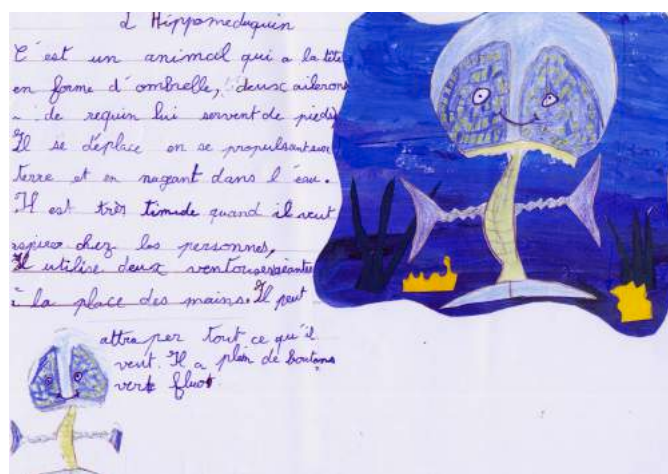 L'Hippomeduquin
C'est un animal qui a la tête
en forme d'ombrelle, deux ailerons
de requin lui servent de pieds
Il se déplace en se propulsant sur
terre et en nageant dans l'eau.
Il est très timide quand il veut
chez les personnes,
Il utilise deux ventouses géantes
à la place des mains. Il peut
attraper tout ce qu'il
veut. Il a plein de boutons
vert fluo